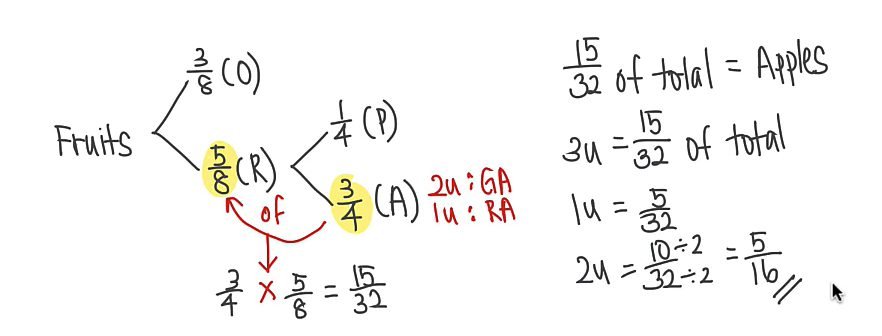 3/8 (O)
Fruits
5/8 (R)
1/4 (P)
3/4 (A)
2u : GA
1u : RA
of
3/4 × 5/8 = 15/32
15/32 of total = Apples
3u = 15/32 of total
1u = 5/32
2u = 10÷2/32÷2 = 5/16 //